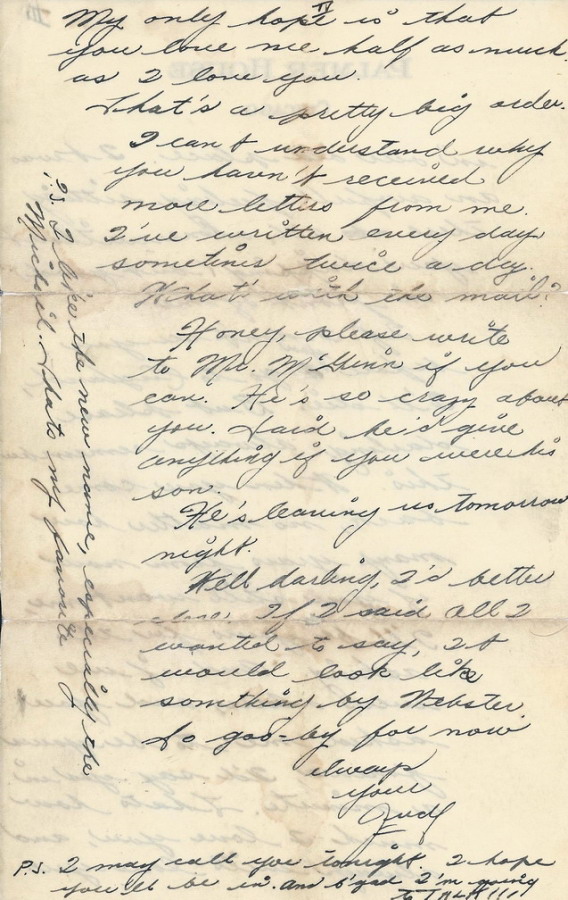 II
My only hope is that
you love me half as much
as I love you.
That's a pretty big order.
I can't understand why
you haven't received
more letters from me.
I've written every day
sometimes twice a day.
What's with the mail?
Honey, please write
to Mr. McGuinn if you
can. He's so crazy about
you. Said he'd give
anything if you were his
son.
He's leaving us tomorrow
night.
Well darling, I'd better
close. If I said all I
wanted to say, it
would look like
something by Webster.
So goo-by for now
Always
your
Judy
P.S. I may call you tonight. I hope
you'll be in. and b'gad I'm going
to TALK!!!
P.S. I like the new name, especially the
Michael. Thats my favorite
PALMER HOUSE